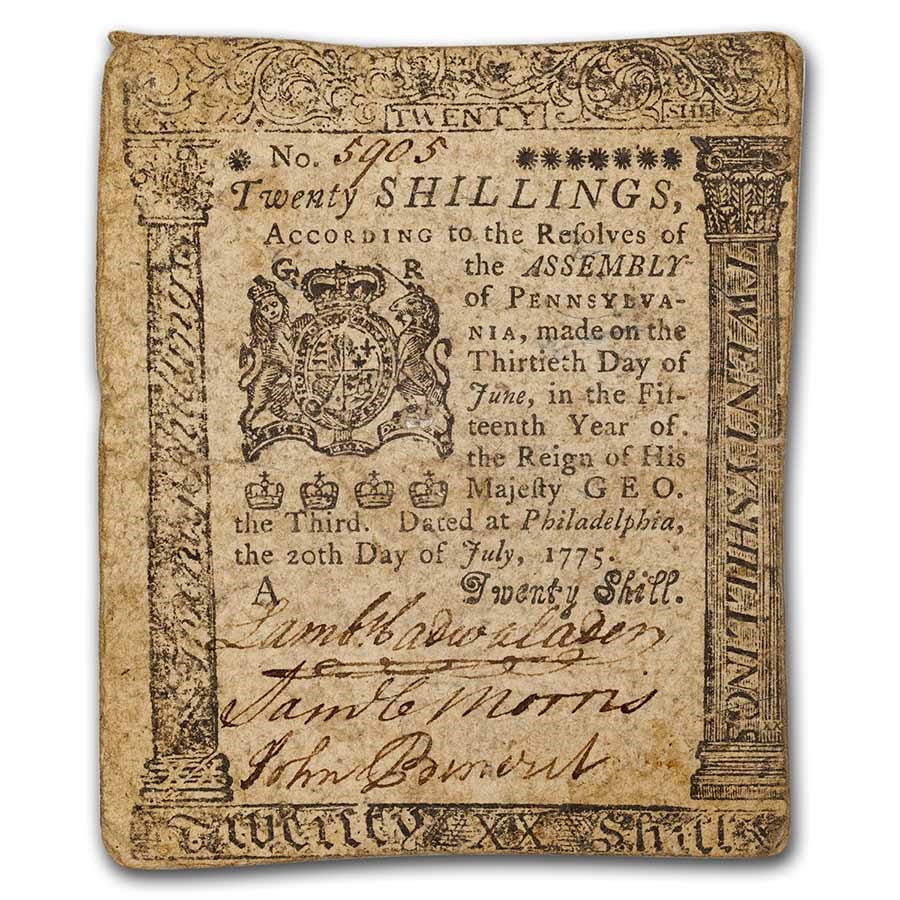 xx
TWENTY SHIL
xs
* No. 5905 *******
Twenty SHILLINGS,
ACCORDING to the Reſolves of
G R the ASSEMBLY
of PENNSYLVA-
NIA, made on the
Thirtieth Day of
June, in the Fif-
teenth Year of
the Reign of His
Majeſty GEO.
the Third. Dated at Philadelphia,
the 20th Day of July, 1775.
A Twenty Shill.
Lambt Cadwalader
Saml C Morris
John
Twenty Shillings
TWENTY SHILLINGS
XX
Twenty XX Shills